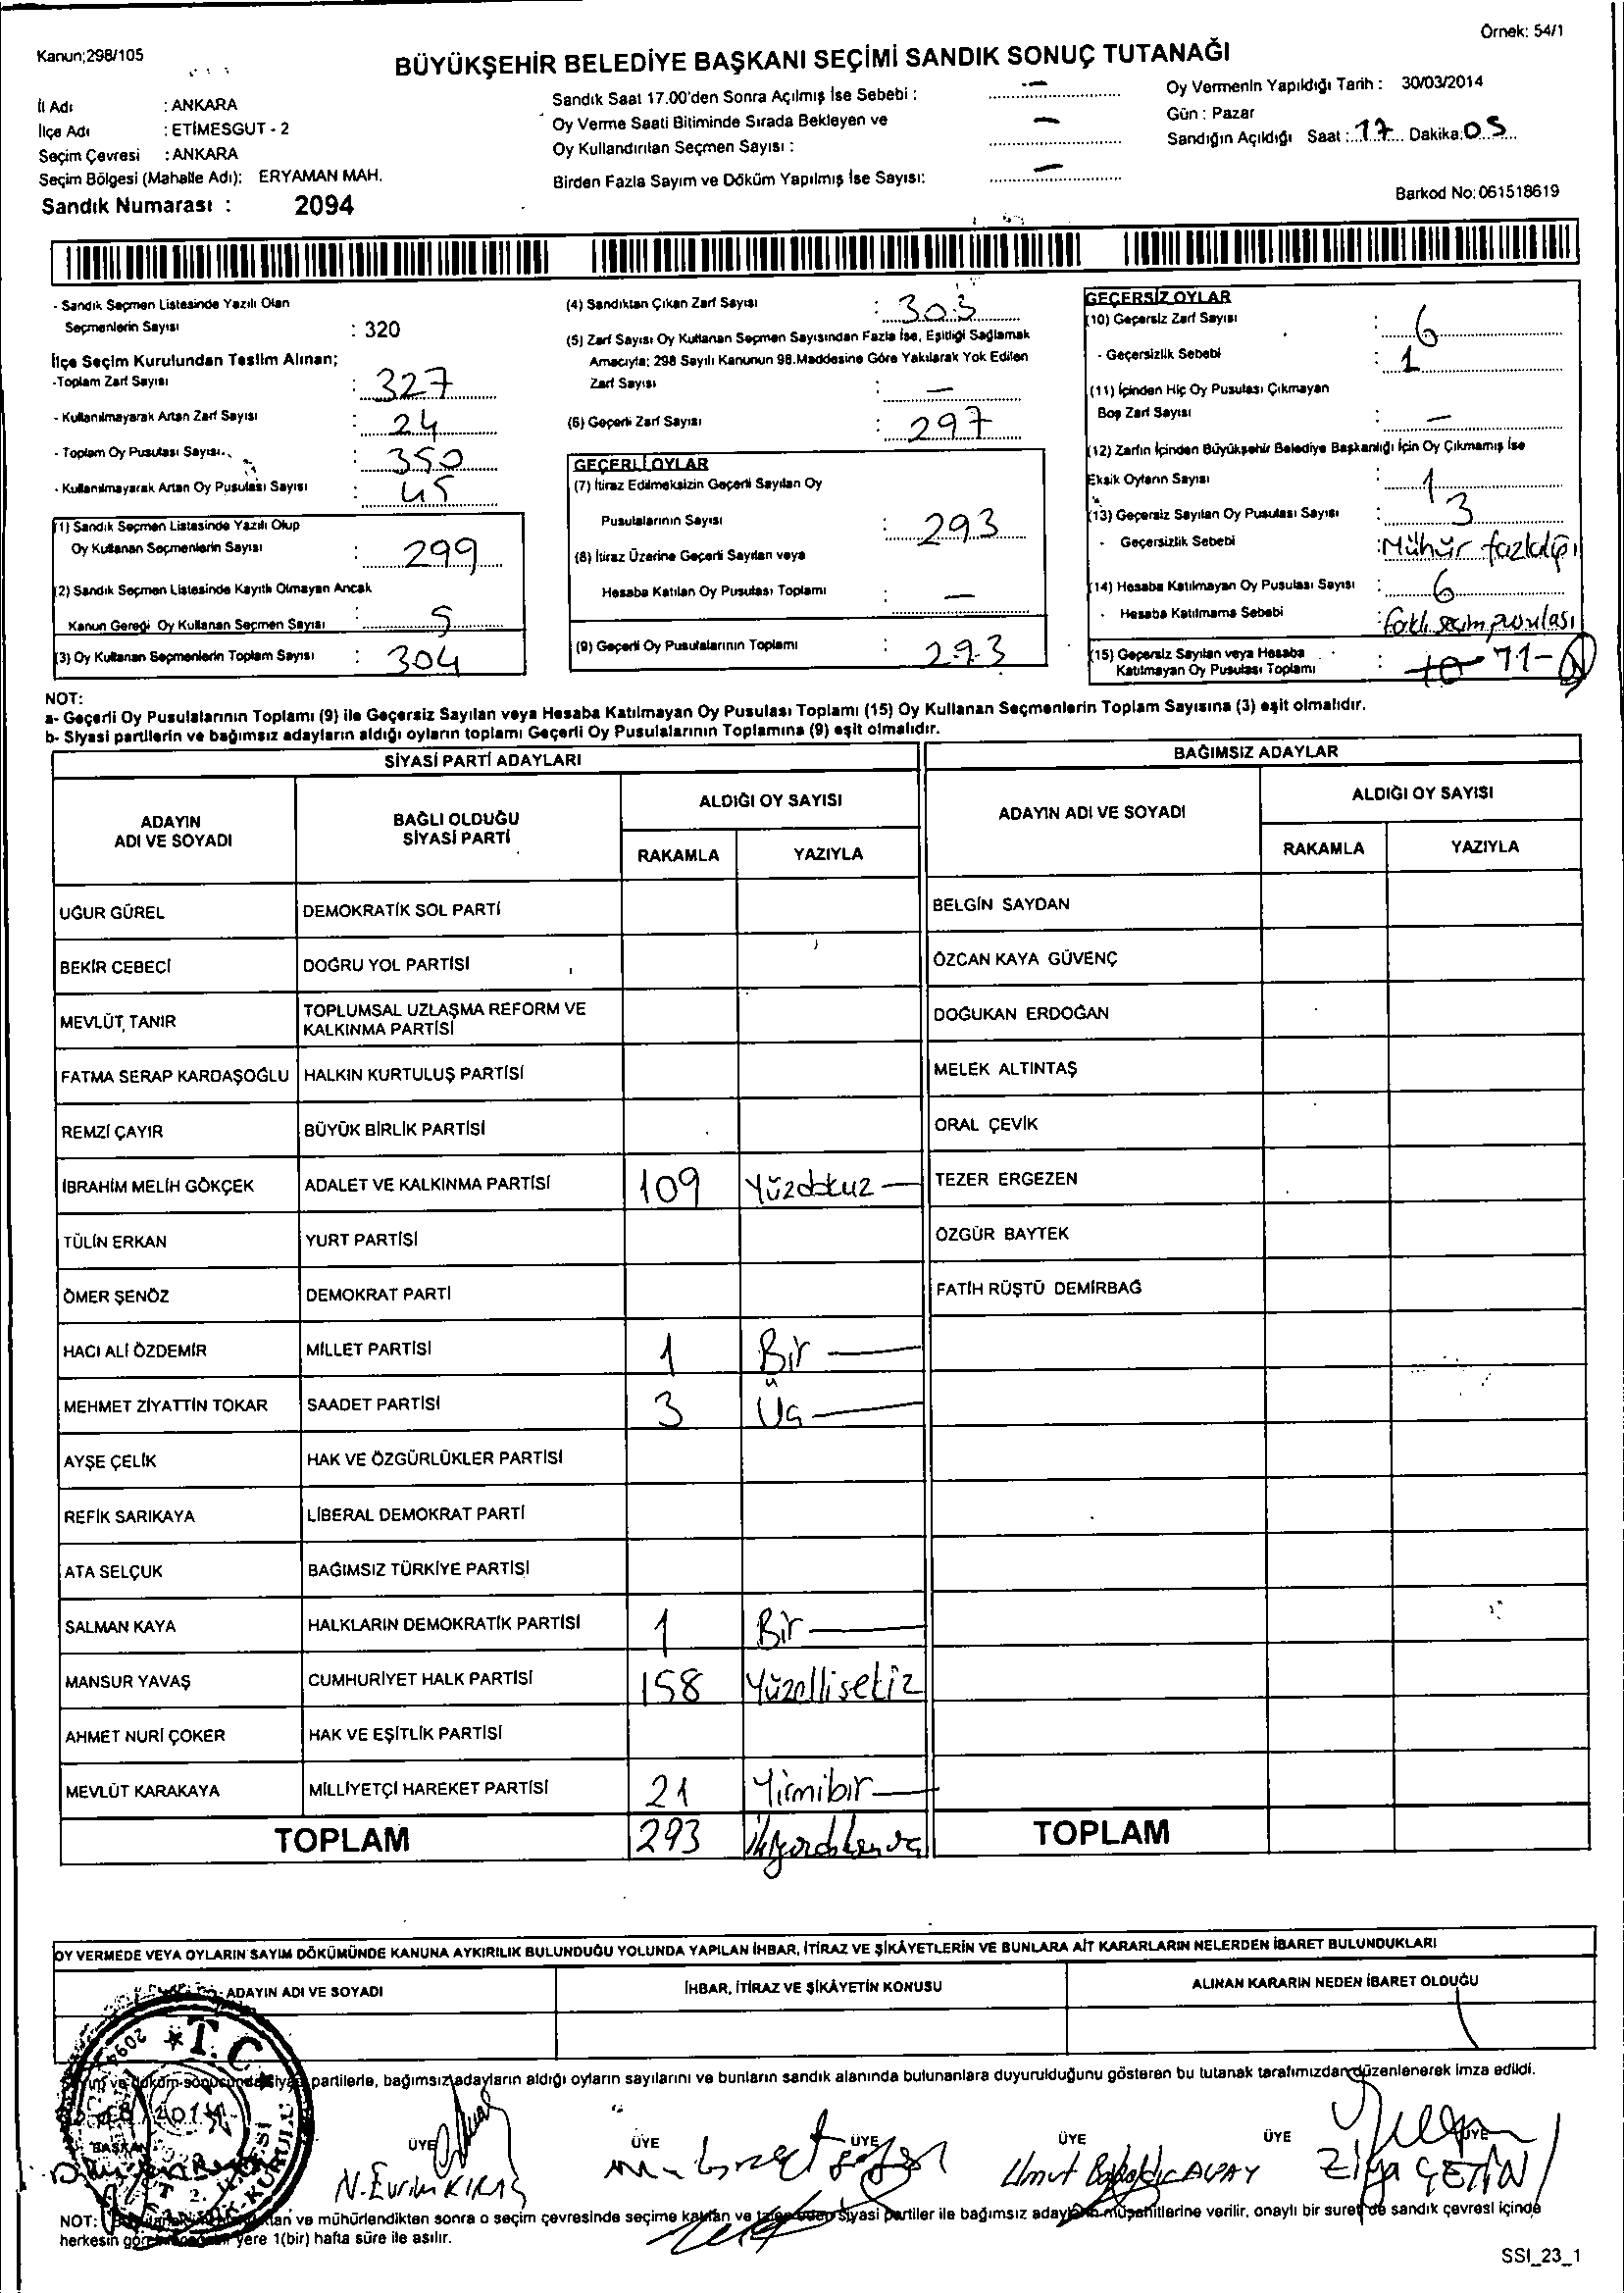 Kanun;298/105
Örnek: 54/1
BÜYÜKŞEHİR BELEDİYE BAŞKANI SEÇİMİ SANDIK SONUÇ TUTANAĞI
İl Adı : ANKARA
İlçe Adı : ETİMESGUT - 2
Seçim Çevresi : ANKARA
Seçim Bölgesi (Mahalle Adı): ERYAMAN MAH.
Sandık Numarası : 2094
Sandık Saat 17.00'den Sonra Açılmış İse Sebebi : —
Oy Verme Saati Bitiminde Sırada Bekleyen ve
Oy Kullandırılan Seçmen Sayısı : —
Birden Fazla Sayım ve Döküm Yapılmış İse Sayısı: —
Oy Vermenin Yapıldığı Tarih : 30/03/2014
Gün : Pazar
Sandığın Açıldığı Saat : 17 Dakika: 05
Barkod No: 061518619
- Sandık Seçmen Listesinde Yazılı Olan
Seçmenlerin Sayısı : 320
İlçe Seçim Kurulundan Teslim Alınan;
-Toplam Zarf Sayısı : 327
- Kullanılmayarak Artan Zarf Sayısı : 24
- Toplam Oy Pusulası Sayısı : 350
- Kullanılmayarak Artan Oy Pusulası Sayısı : 45
(1) Sandık Seçmen Listesinde Yazılı Olup
Oy Kullanan Seçmenlerin Sayısı : 299
(2) Sandık Seçmen Listesinde Kayıtlı Olmayan Ancak
Kanun Gereği Oy Kullanan Seçmen Sayısı : 5
(3) Oy Kullanan Seçmenlerin Toplam Sayısı : 304
(4) Sandıktan Çıkan Zarf Sayısı : 303
(5) Zarf Sayısı Oy Kullanan Seçmen Sayısından Fazla İse, Eşitliği Sağlamak
Amacıyla; 298 Sayılı Kanunun 98.Maddesine Göre Yakılarak Yok Edilen
Zarf Sayısı : —
(6) Geçerli Zarf Sayısı : 297
GEÇERLİ OYLAR
(7) İtiraz Edilmeksizin Geçerli Sayılan Oy
Pusulalarının Sayısı : 293
(8) İtiraz Üzerine Geçerli Sayılan veya
Hesaba Katılan Oy Pusulası Toplamı : —
(9) Geçerli Oy Pusulalarının Toplamı : 293
GEÇERSİZ OYLAR
(10) Geçersiz Zarf Sayısı : 6
- Geçersizlik Sebebi : 1
(11) İçinden Hiç Oy Pusulası Çıkmayan
Boş Zarf Sayısı : —
(12) Zarfın İçinden Büyükşehir Belediye Başkanlığı İçin Oy Çıkmamış İse
Eksik Oyların Sayısı : 1
(13) Geçersiz Sayılan Oy Pusulası Sayısı : 3
- Geçersizlik Sebebi : Mühür fazlalığı
(14) Hesaba Katılmayan Oy Pusulası Sayısı : 6
- Hesaba Katılmama Sebebi : farklı seçim pusulası
(15) Geçersiz Sayılan veya Hesaba
Katılmayan Oy Pusulası Toplamı : 10 11
NOT:
a- Geçerli Oy Pusulalarının Toplamı (9) ile Geçersiz Sayılan veya Hesaba Katılmayan Oy Pusulası Toplamı (15) Oy Kullanan Seçmenlerin Toplam Sayısına (3) eşit olmalıdır.
b- Siyasi partilerin ve bağımsız adayların aldığı oyların toplamı Geçerli Oy Pusulalarının Toplamına (9) eşit olmalıdır.
SİYASİ PARTİ ADAYLARI
BAĞIMSIZ ADAYLAR
ADAYIN
ADI VE SOYADI
BAĞLI OLDUĞU
SİYASİ PARTİ
ALDIĞI OY SAYISI
RAKAMLA YAZIYLA
ADAYIN ADI VE SOYADI
ALDIĞI OY SAYISI
RAKAMLA YAZIYLA
UĞUR GÜREL DEMOKRATİK SOL PARTİ BELGİN SAYDAN
BEKİR CEBECİ DOĞRU YOL PARTİSİ ÖZCAN KAYA GÜVENÇ
MEVLÜT TANIR TOPLUMSAL UZLAŞMA REFORM VE
KALKINMA PARTİSİ DOĞUKAN ERDOĞAN
FATMA SERAP KARDAŞOĞLU HALKIN KURTULUŞ PARTİSİ MELEK ALTINTAŞ
REMZİ ÇAYIR BÜYÜK BİRLİK PARTİSİ ORAL ÇEVİK
İBRAHİM MELİH GÖKÇEK ADALET VE KALKINMA PARTİSİ 109 Yüzdokuz — TEZER ERGEZEN
TÜLİN ERKAN YURT PARTİSİ ÖZGÜR BAYTEK
ÖMER ŞENÖZ DEMOKRAT PARTİ FATİH RÜŞTÜ DEMİRBAĞ
HACI ALİ ÖZDEMİR MİLLET PARTİSİ 1 Bir —
MEHMET ZİYATTİN TOKAR SAADET PARTİSİ 3 Üç —
AYŞE ÇELİK HAK VE ÖZGÜRLÜKLER PARTİSİ
REFİK SARIKAYA LİBERAL DEMOKRAT PARTİ
ATA SELÇUK BAĞIMSIZ TÜRKİYE PARTİSİ
SALMAN KAYA HALKLARIN DEMOKRATİK PARTİSİ 1 Bir —
MANSUR YAVAŞ CUMHURİYET HALK PARTİSİ 158 Yüzellisekiz
AHMET NURİ ÇOKER HAK VE EŞİTLİK PARTİSİ
MEVLÜT KARAKAYA MİLLİYETÇİ HAREKET PARTİSİ 21 Yirmibir —
TOPLAM 293 TOPLAM
OY VERMEDE VEYA OYLARIN SAYIM DÖKÜMÜNDE KANUNA AYKIRILIK BULUNDUĞU YOLUNDA YAPILAN İHBAR, İTİRAZ VE ŞİKÂYETLERİN VE BUNLARA AİT KARARLARIN NELERDEN İBARET BULUNDUKLARI
ADAYIN ADI VE SOYADI İHBAR, İTİRAZ VE ŞİKÂYETİN KONUSU ALINAN KARARIN NEDEN İBARET OLDUĞU
T.C.
2094
partilerle, bağımsız adayların aldığı oyların sayılarını ve bunların sandık alanında bulunanlara duyurulduğunu gösteren bu tutanak tarafımızdan düzenlenerek imza edildi.
BAŞKAN ÜYE ÜYE ÜYE ÜYE ÜYE ÜYE
N. Evrim KIRAÇ Umut ALPAY Ziya ÇETİN
NOT: ve mühürlendikten sonra o seçim çevresinde seçime katılan ve siyasi partiler ile bağımsız adayların müşahitlerine verilir, onaylı bir suret de sandık çevresi içinde
herkesin yere 1(bir) hafta süre ile asılır.
SSI_23_1